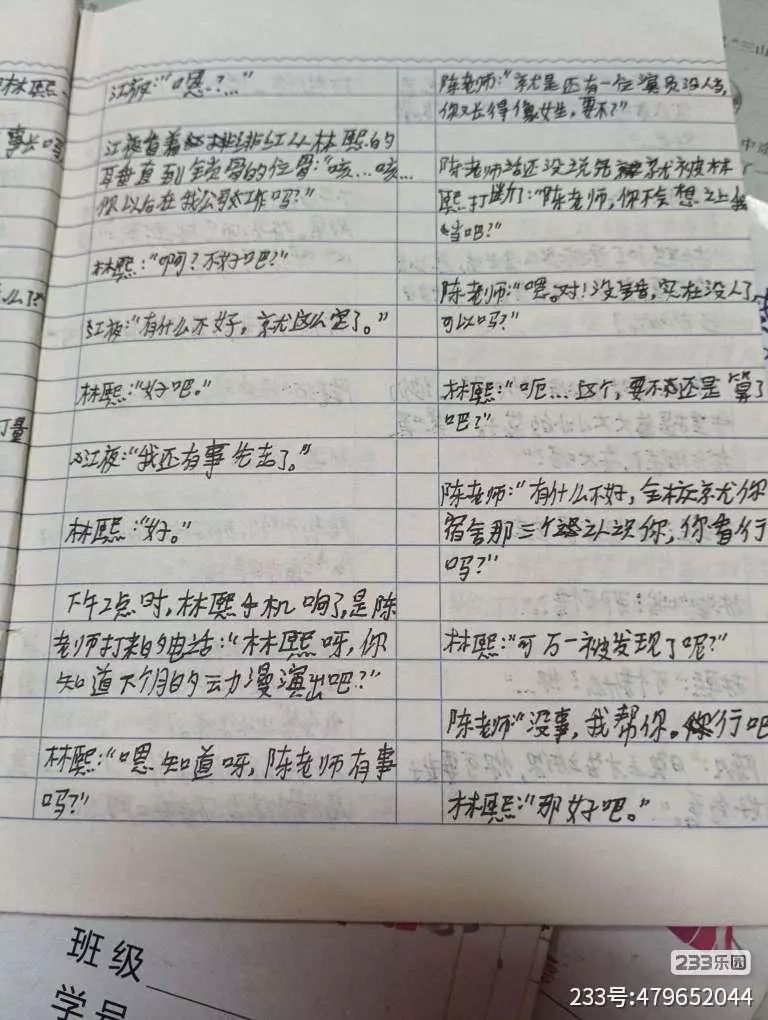 林熙
事长吗
么了?
打量
江夜:“嗯?…”
江夜看着绯红从林熙的
耳垂直到锁骨的位置:“咳…咳…
你以后在我公司工作吗?”
林熙:“啊?不好吧?”
江夜:“有什么不好,就这么定了。”
林熙:“好吧。”
江夜:“我还有事先走了。”
林熙:“好。”
下午2点时,林熙手机响了,是陈
老师打来的电话:“林熙呀,你
知道下个月的动漫演出吧?”
林熙:“嗯知道呀,陈老师有事
吗?”
陈老师:“就是还有一位演员没人当,
你又长得像女生,要不?”
陈老师话还没说完就被林
熙打断了:“陈老师,你不会想让我
当吧?”
陈老师:“嗯。对!没错,实在没人了,
可以吗?”
林熙:“呃…这个,要不还是算了
吧?”
陈老师:“有什么不好,全校就你
宿舍那三个认识你,你看行
吗?”
林熙:“可万一被发现了呢?”
陈老师“没事,我帮你。你行吧
林熙:“那好吧。”
班级
学号
233乐园
233号:479652044